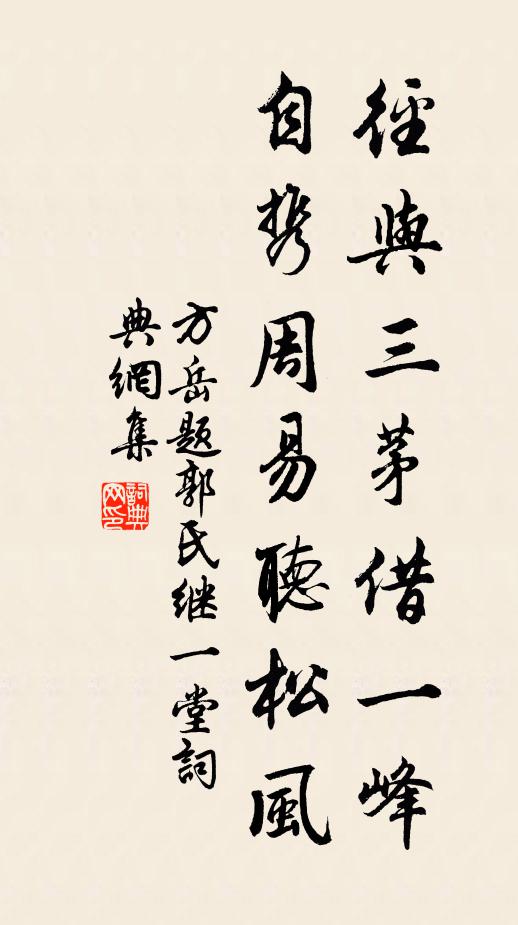 徑與三茅借一峰
自携周易聽松風
方岳题郭氏继一堂詞
典網集
詞典
网印